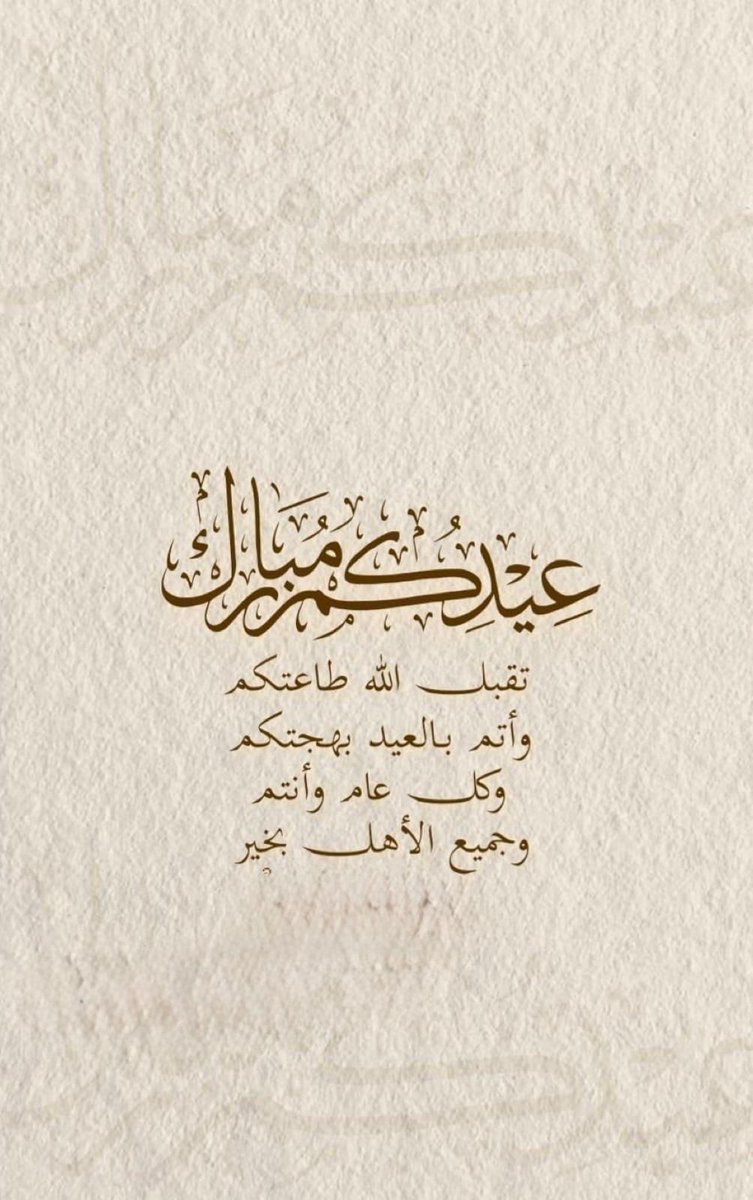 عِيْدِكُم مُبَارك
تقبل الله طاعتكم
وأتم بالعيد بهجتكم
وكل عام وأنتم
وجميع الأهل بخير